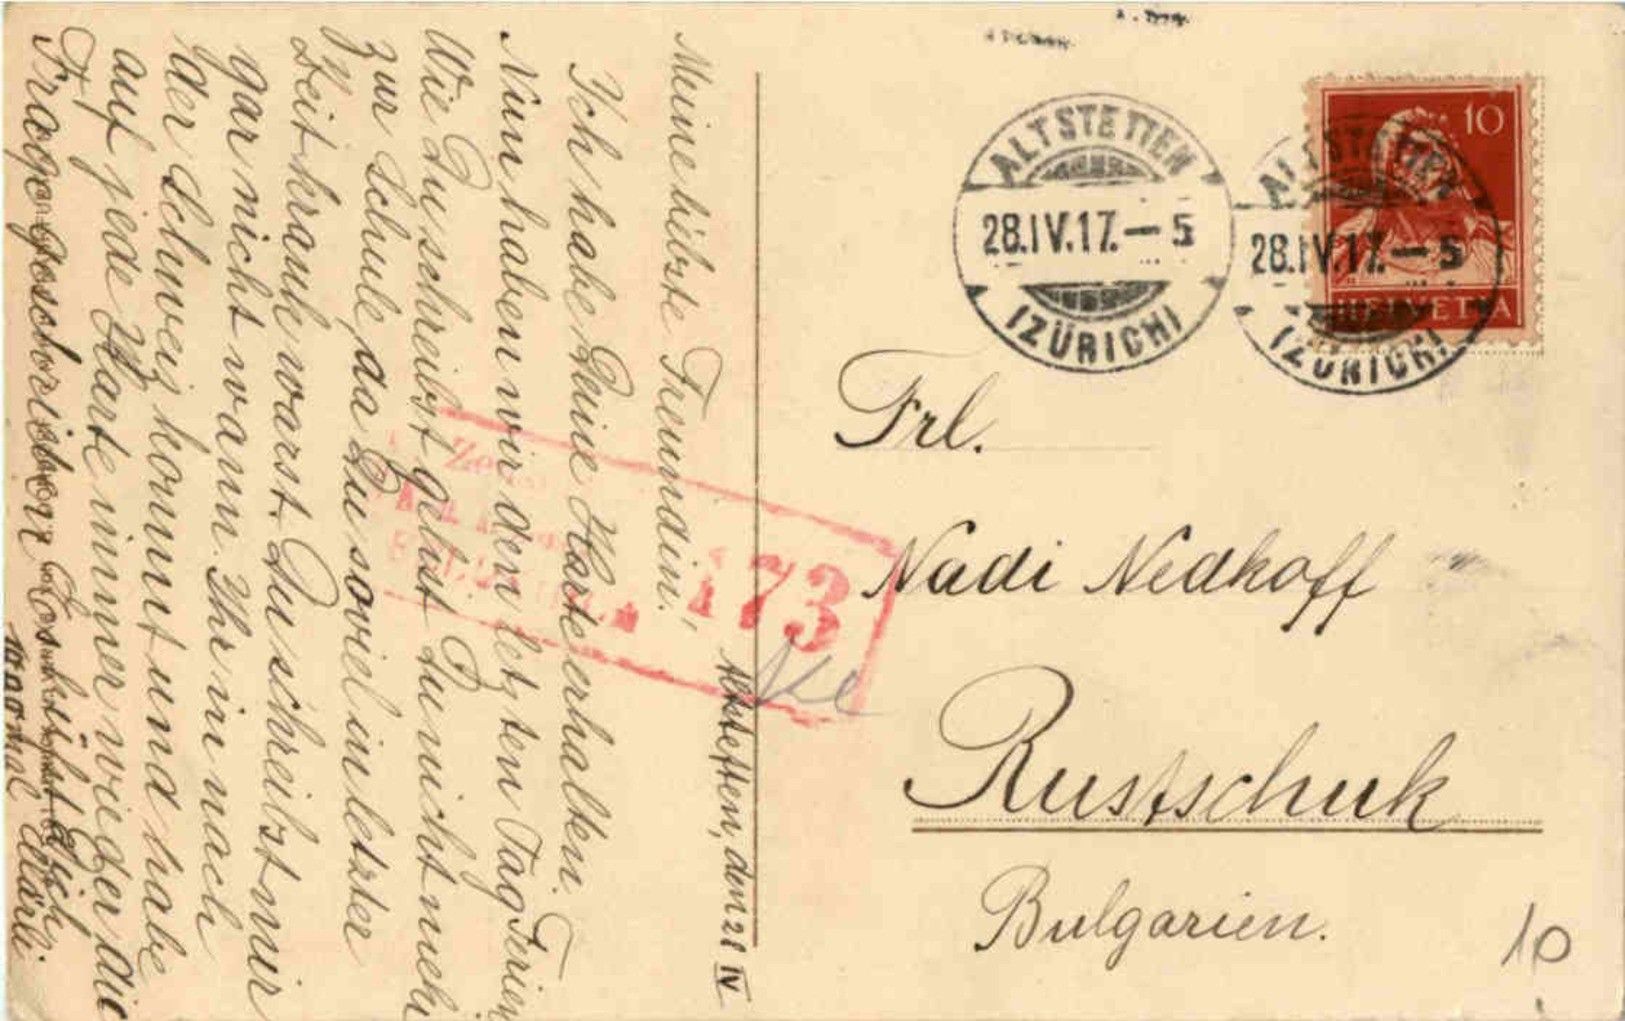 Altstetten, den 28 IV
Meine liebste Freundin,
Ich habe Deine Karte erhalten.
Nun haben wir den letzten Tag Ferien
Wie Du schreibst gehst Du nicht mehr
zur Schule, da Du soviel in letzter
Zeit krank warst. Du schreibst mir
gar nicht wann Ihr in nach
der Schweiz kommt und habe
auf jede Karte immer wieder die
Frage geschrieben. Es grüßt Dich
1000 mal Clärli.
ALTSTETTEN
28.IV.17.–5
(ZÜRICH)
ALTSTETTEN
28.IV.17.–5
(ZÜRICH)
10
HELVETIA
Frl.
Nadi Nedkoff
Rustschuk
Bulgarien.
173
10